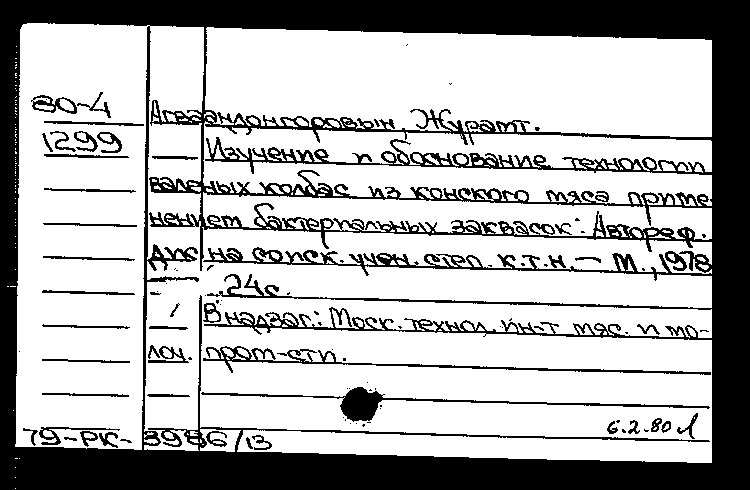 80-4
1299
Агваандонгоровын, Журамт.
Изучение и обоснование технологии
валеных колбас из конского мяса приме-
нением бактериальных заквасок: Автореф.
Дис на соиск. учен. степ. к.т.н. — М., 1978
24с.
В надзаг.: Моск. технол. ин-т мяс. и мо-
лоч. пром-сти.
6.2.80 Л
79-РК-3986/13